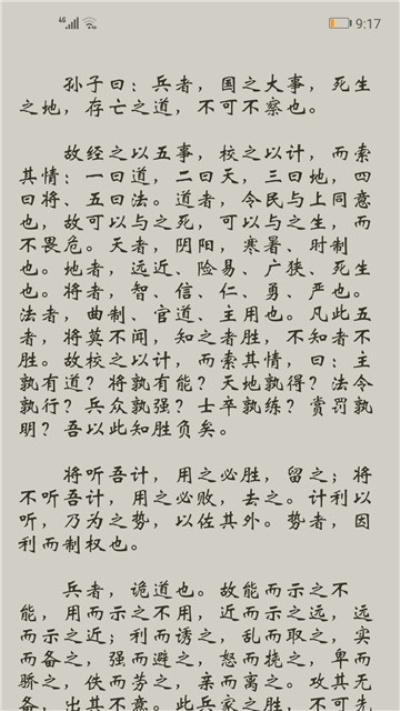 4G 9:17
孙子曰：兵者，国之大事，死生
之地，存亡之道，不可不察也。
故经之以五事，校之以计，而索
其情：一曰道，二曰天，三曰地，四
曰将、五曰法。道者，令民与上同意
也，故可以与之死，可以与之生，而
不畏危。天者，阴阳，寒暑、时制
也。地者，远近、险易、广狭、死生
也。将者，智、信、仁、勇、严也。
法者，曲制、官道、主用也。凡此五
者，将莫不闻，知之者胜，不知者不
胜。故校之以计，而索其情，曰：主
孰有道？将孰有能？天地孰得？法令
孰行？兵众孰强？士卒孰练？赏罚孰
明？吾以此知胜负矣。
将听吾计，用之必胜，留之；将
不听吾计，用之必败，去之。计利以
听，乃为之势，以佐其外。势者，因
利而制权也。
兵者，诡道也。故能而示之不
能，用而示之不用，近而示之远，远
而示之近；利而诱之，乱而取之，实
而备之，强而避之，怒而挠之，卑而
骄之，佚而劳之，亲而离之。攻其无
备，出其不意。此兵家之胜，不可先